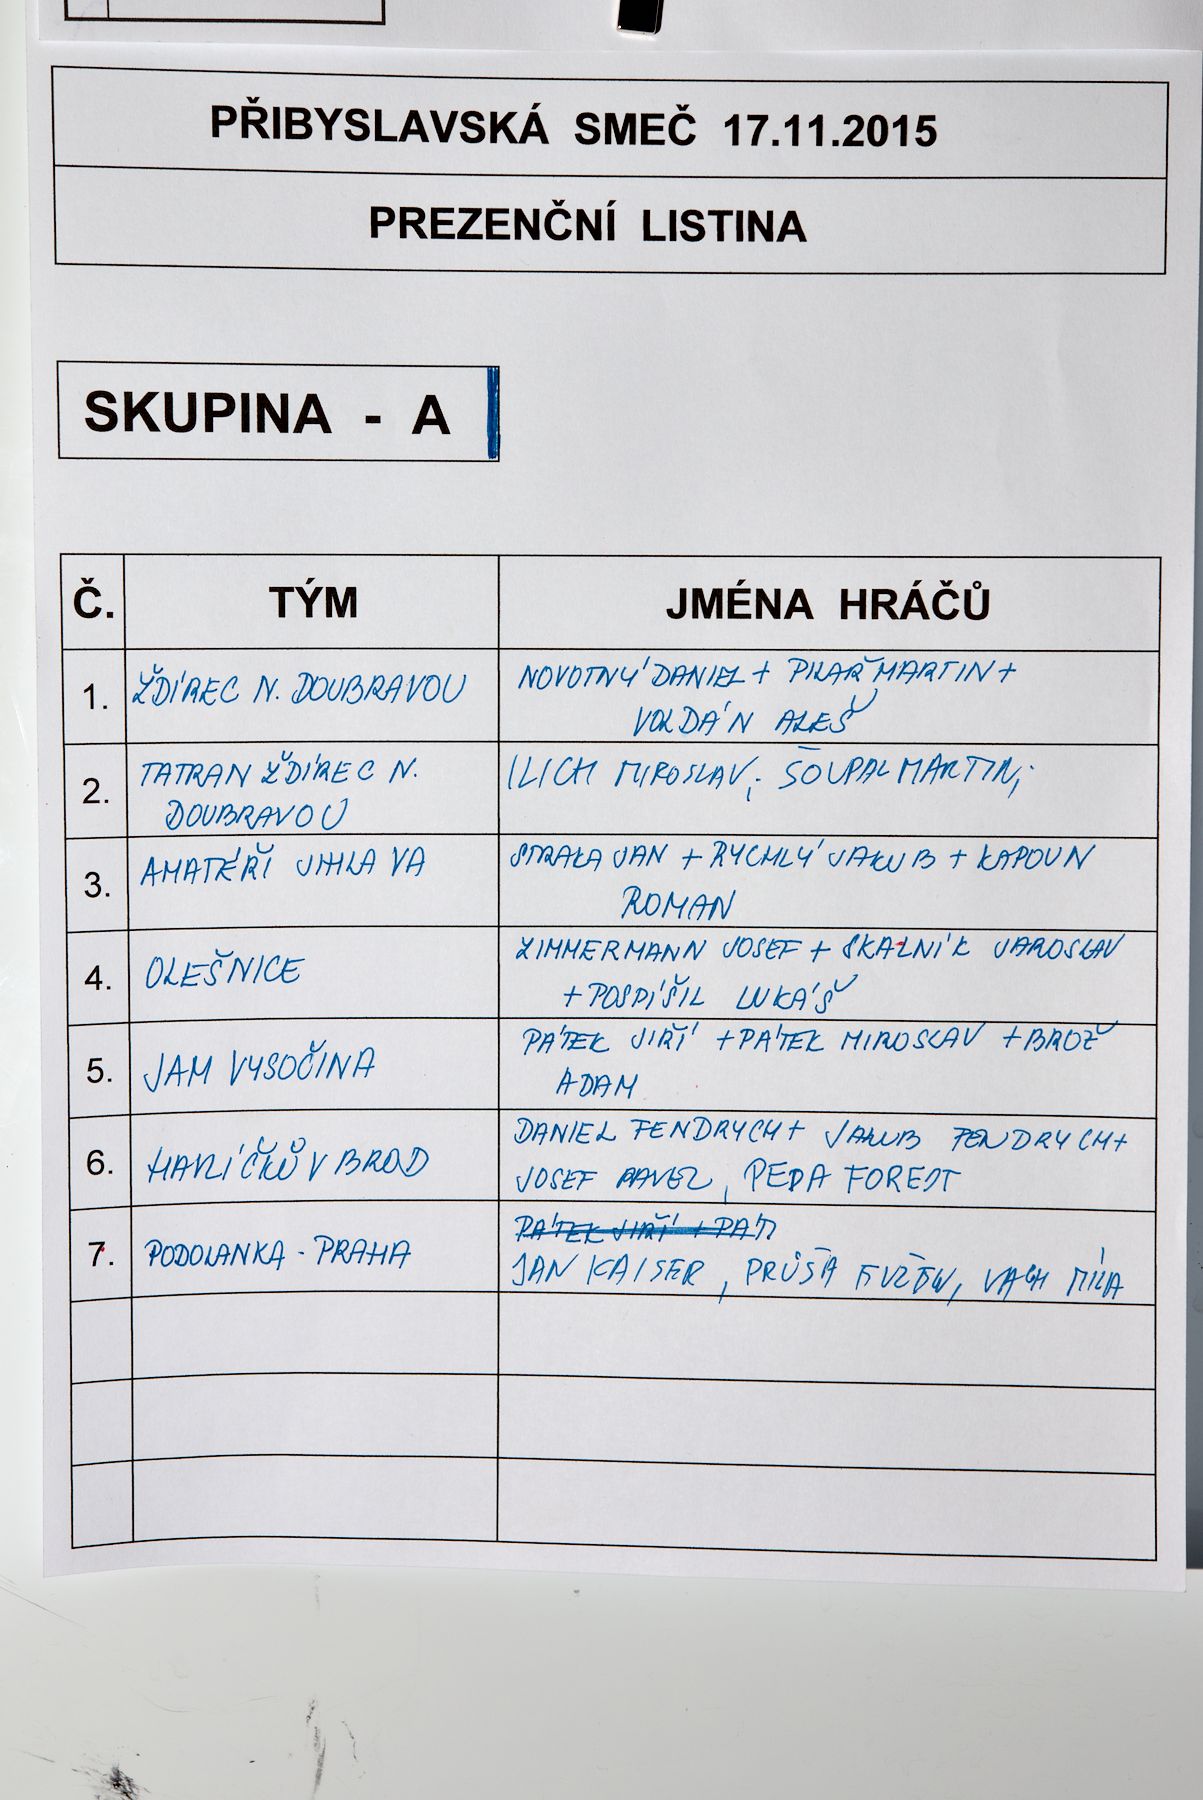 PŘIBYSLAVSKÁ SMEČ 17.11.2015
PREZENČNÍ LISTINA
SKUPINA - A
Č. TÝM JMÉNA HRÁČŮ
1. ŽDÍREC N. DOUBRAVOU NOVOTNÝ DANIEL + PILAŘ MARTIN +
VOLDÁN ALEŠ
2. TATRAN ŽDÍREC N. ILICH MIROSLAV; ŠOUPAL MARTIN;
DOUBRAVOU
3. AMATÉŘI JIHLAVA STRAKA JAN + RYCHLÝ JAKUB + KAPOUN
ROMAN
4. OLEŠNICE ZIMMERMANN JOSEF + SKALNÍK JAROSLAV
+ POSPÍŠIL LUKÁŠ
5. JAM VYSOČINA PÁTEK JIŘÍ + PÁTEK MIROSLAV + BROŽ
ADAM
6. HAVLÍČKŮV BROD DANIEL FENDRYCH + JAKUB FENDRYCH +
JOSEF PAVEL, PEDA FOREJT
7. PODOLANKA - PRAHA PÁTEK JIŘÍ + PÁT
JAN KAISER, PRŮŠA, VACH MÍLA